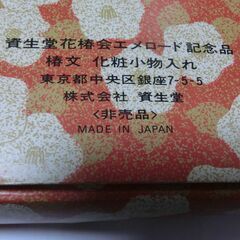 資生堂花椿会エメロード記念品
椿文 化粧小物入れ
東京都中央区銀座7-5-5
株式会社 資生堂
<非売品>
MADE IN JAPAN